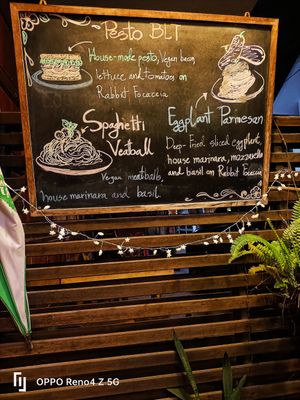 Pesto BLT
House-made pesto, Vegan bacon,
lettuce and tomatoes on
Rabbit Focaccia
Spaghetti
Veatball
Vegan meatballs,
house marinara and basil.
Eggplant Parmesan
Deep-Fried sliced eggplant,
house marinara, mozzarella
and basil on Rabbit Focaccia
OPPO Reno4 Z 5G